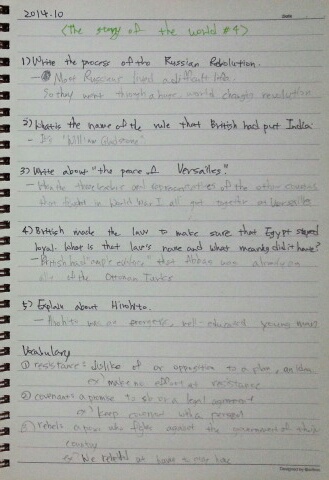 2014.10
Date
<The story of the world #4>
1) Write the process of the Russian Revolution.
- Most Russians lived a difficult life.
So they went through a huge, world changing revolution
2) What is the name of the rule that British had put India
- It's "William Gladstone"
3) Write about "the peace of Versailles."
- When the leaders and representatives of the other countries
that fought in World War I all got together in Versailles
4) British made the law to make sure that Egypt stayed
loyal. What is that law's name and what meaning did it have?
- British had that Abbas was already an
ally of the Ottoman Turks
5) Explain about Hirohito.
- Hirohito was an energetic, well-educated young man
Vocabulary
① resistance: dislike of or opposition to a plan, an idea
ex) make no effort at resistance
② covenant: a promise to or a legal agreement
ex) keep covenant with a person
③ rebel: a person who fights against the government of their
country
ex) We
Designed by